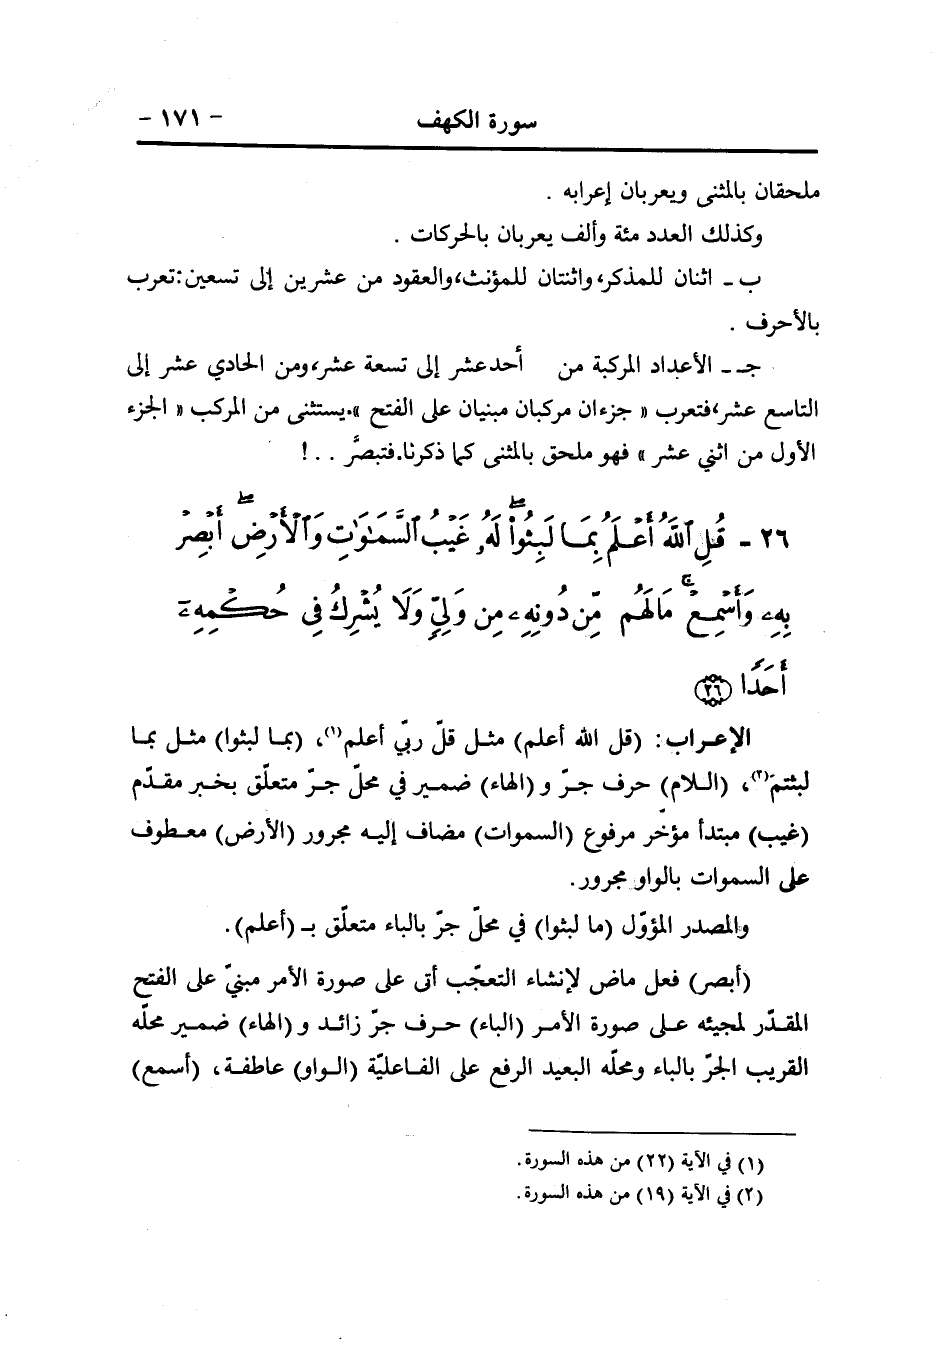 سورة الكهف - ١٧١ -
ملحقان بالمثنى ويعربان إعرابه .
وكذلك العدد مئة وألف يعربان بالحركات .
ب ـ اثنان للمذكر، واثنتان للمؤنث، والعقود من عشرين إلى تسعين: تعرب
بالأحرف .
جـ ـ الأعداد المركبة من أحد عشر إلى تسعة عشر، ومن الحادي عشر إلى
التاسع عشر، فتعرب « جزءان مركبان مبنيان على الفتح ». يستثنى من المركب « الجزء
الأول من اثني عشر » فهو ملحق بالمثنى كما ذكرنا. فتبصَّر . . . !
٢٦ - قُلِ ٱللَّهُ أَعْلَمُ بِمَا لَبِثُوا۟ ۖ لَهُۥ غَيْبُ ٱلسَّمَٰوَٰتِ وَٱلْأَرْضِ ۖ أَبْصِرْ
بِهِۦ وَأَسْمِعْ ۚ مَا لَهُم مِّن دُونِهِۦ مِن وَلِىٍّ وَلَا يُشْرِكُ فِى حُكْمِهِۦٓ
أَحَدًا ٢٦
الإعراب: (قل الله أعلم) مثل قلّ ربّي أعلم(١)، (بما لبثوا) مثل بما
لبثتم(٢)، (اللام) حرف جرّ و (الهاء) ضمير في محلّ جرّ متعلّق بخبر مقدّم
(غيب) مبتدأ مؤخّر مرفوع (السموات) مضاف إليه مجرور (الأرض) معطوف
على السموات بالواو مجرور.
والمصدر المؤوّل (ما لبثوا) في محلّ جرّ بالباء متعلّق بـ (أعلم).
(أبصر) فعل ماض لإنشاء التعجّب أتى على صورة الأمر مبنيّ على الفتح
المقدّر لمجيئه على صورة الأمر (الباء) حرف جرّ زائد و (الهاء) ضمير محلّه
القريب الجرّ بالباء ومحلّه البعيد الرفع على الفاعليّة (الواو) عاطفة، (أسمع)
(١) في الآية (٢٢) من هذه السورة.
(٢) في الآية (١٩) من هذه السورة.